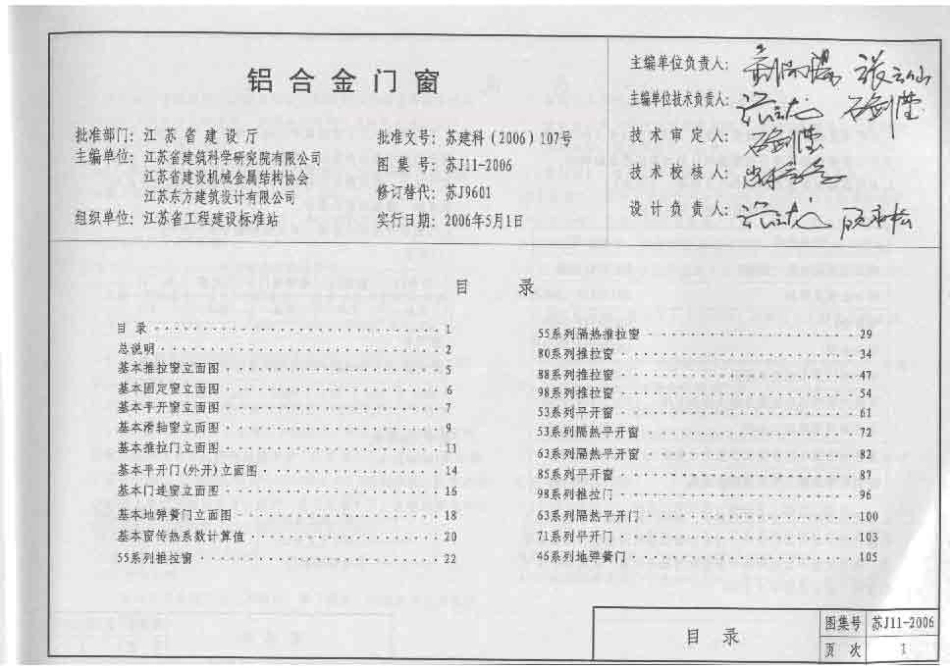 铝合金门窗
批准部门：江苏省建设厅
主编单位：江苏省建筑科学研究院有限公司
江苏省建设机械金属结构协会
江苏东方建筑设计有限公司
组织单位：江苏省工程建设标准站
批准文号：苏建科(2006)107号
图集号：苏J11-2006
修订替代：苏J9601
实行日期：2006年5月1日
主编单位负责人：
主编单位技术负责人：
技术审定人：
技术校核人：
设计负责人：
目录
目录 1
总说明 2
基本推拉窗立面图 5
基本固定窗立面图 6
基本平开窗立面图 7
基本滑轴窗立面图 9
基本推拉门立面图 11
基本平开门(外开)立面图 14
基本门连窗立面图 16
基本地弹簧门立面图 18
基本窗传热系数计算值 20
55系列推拉窗 22
55系列隔热推拉窗 29
80系列推拉窗 34
88系列推拉窗 47
98系列推拉窗 54
53系列平开窗 61
53系列隔热平开窗 72
63系列隔热平开窗 82
85系列平开窗 87
98系列推拉门 96
63系列隔热平开门 100
71系列平开门 103
46系列地弹簧门 105
目录
图集号 苏J11-2006
页次 1